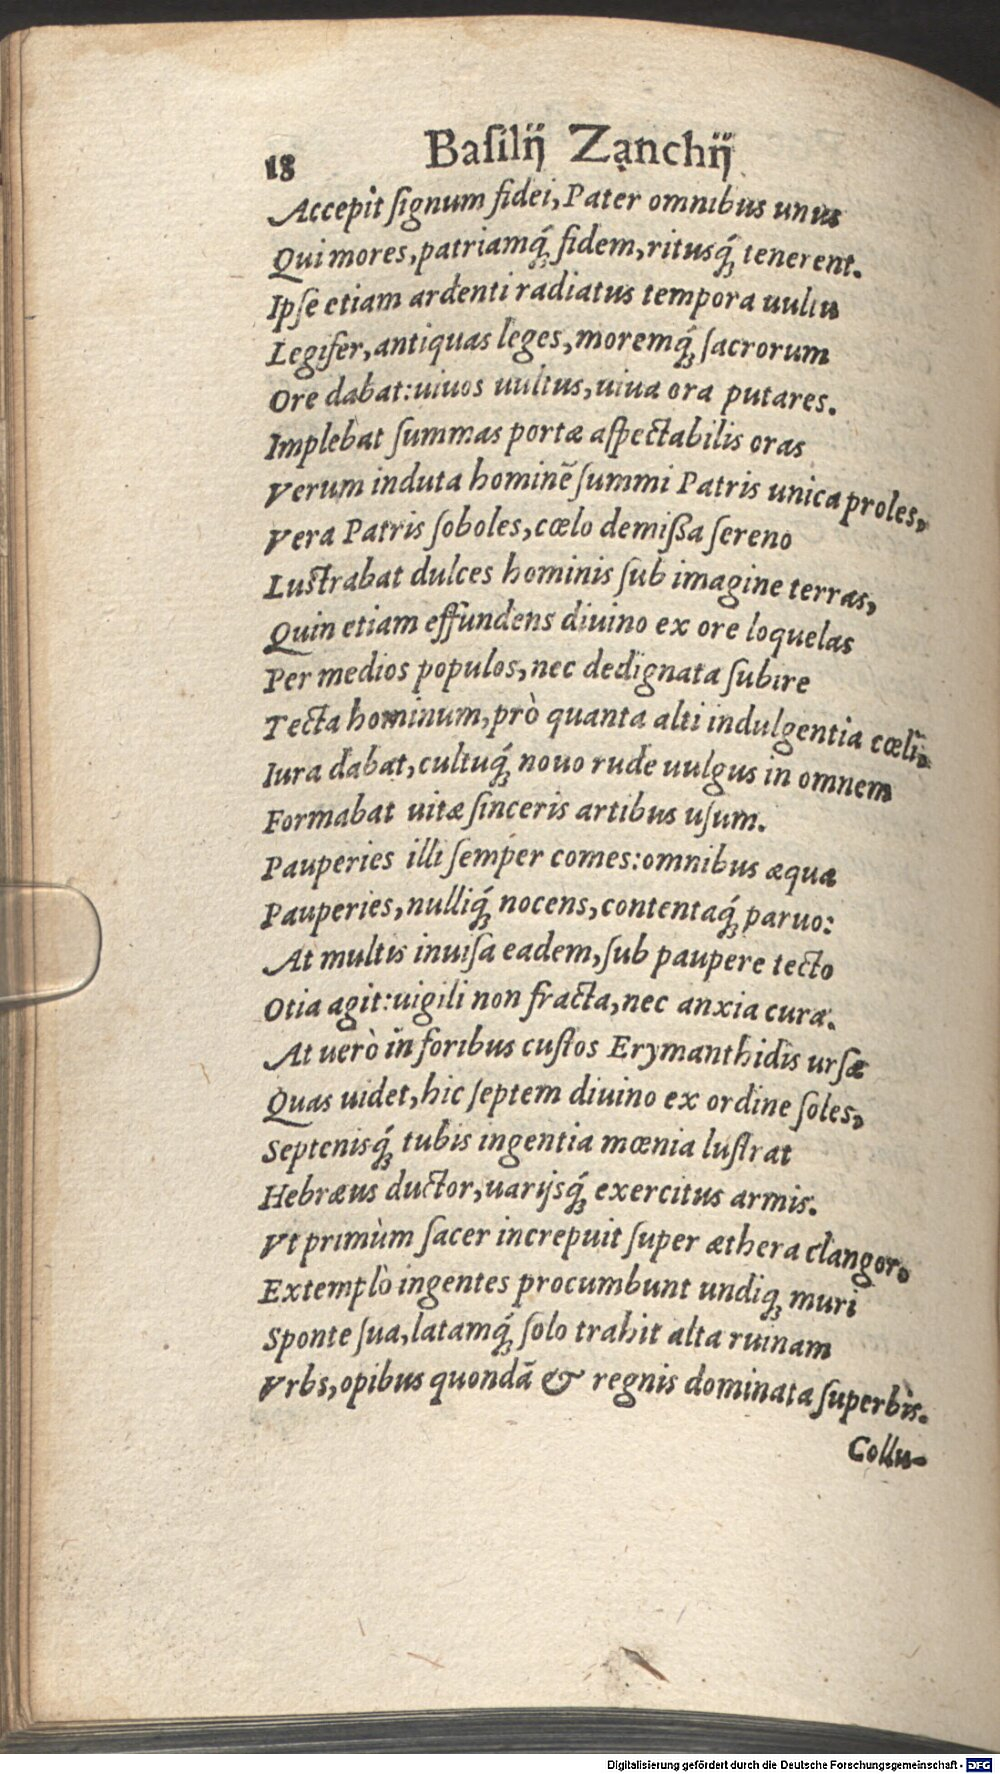 18 Baſilij Zanchij
Accepit ſignum fidei, Pater omnibus unus
Qui mores, patriamq́; fidem, ritusq́; tenerent.
Ipſe etiam ardenti radiatus tempora uultu
Legifer, antiquas leges, moremq́; ſacrorum
Ore dabat: uiuos uultus, uiua ora putares.
Implebat ſummas portæ aſpectabilis oras
Verum induta hominē ſummi Patris unica proles,
Vera Patris ſoboles, cœlo demiſſa ſereno
Luſtrabat dulces hominis ſub imagine terras,
Quin etiam effundens diuino ex ore loquelas
Per medios populos, nec dedignata ſubire
Tecta hominum, prò quanta alti indulgentia cœli,
Iura dabat, cultuq́; nouo rude uulgus in omnem
Formabat uitæ ſinceris artibus uſum.
Pauperies illi ſemper comes: omnibus æqua
Pauperies, nulliq́; nocens, contentaq́; paruo:
At multis inuiſa eadem, ſub paupere tecto
Otia agit: uigili non fracta, nec anxia cura.
At uerò in foribus cuſtos Erymanthidis urſæ
Quas uidet, hic ſeptem diuino ex ordine ſoles,
Septenisq́; tubis ingentia mœnia luſtrat
Hebræus ductor, uarijsq́; exercitus armis.
Vt primùm ſacer increpuit ſuper æthera clangor,
Extemplò ingentes procumbunt undiq; muri
Sponte ſua, latamq́; ſolo trahit alta ruinam
Vrbs, opibus quondā & regnis dominata ſuperbis.
Collu-
Digitalisierung gefördert durch die Deutsche Forschungsgemeinschaft - DFG